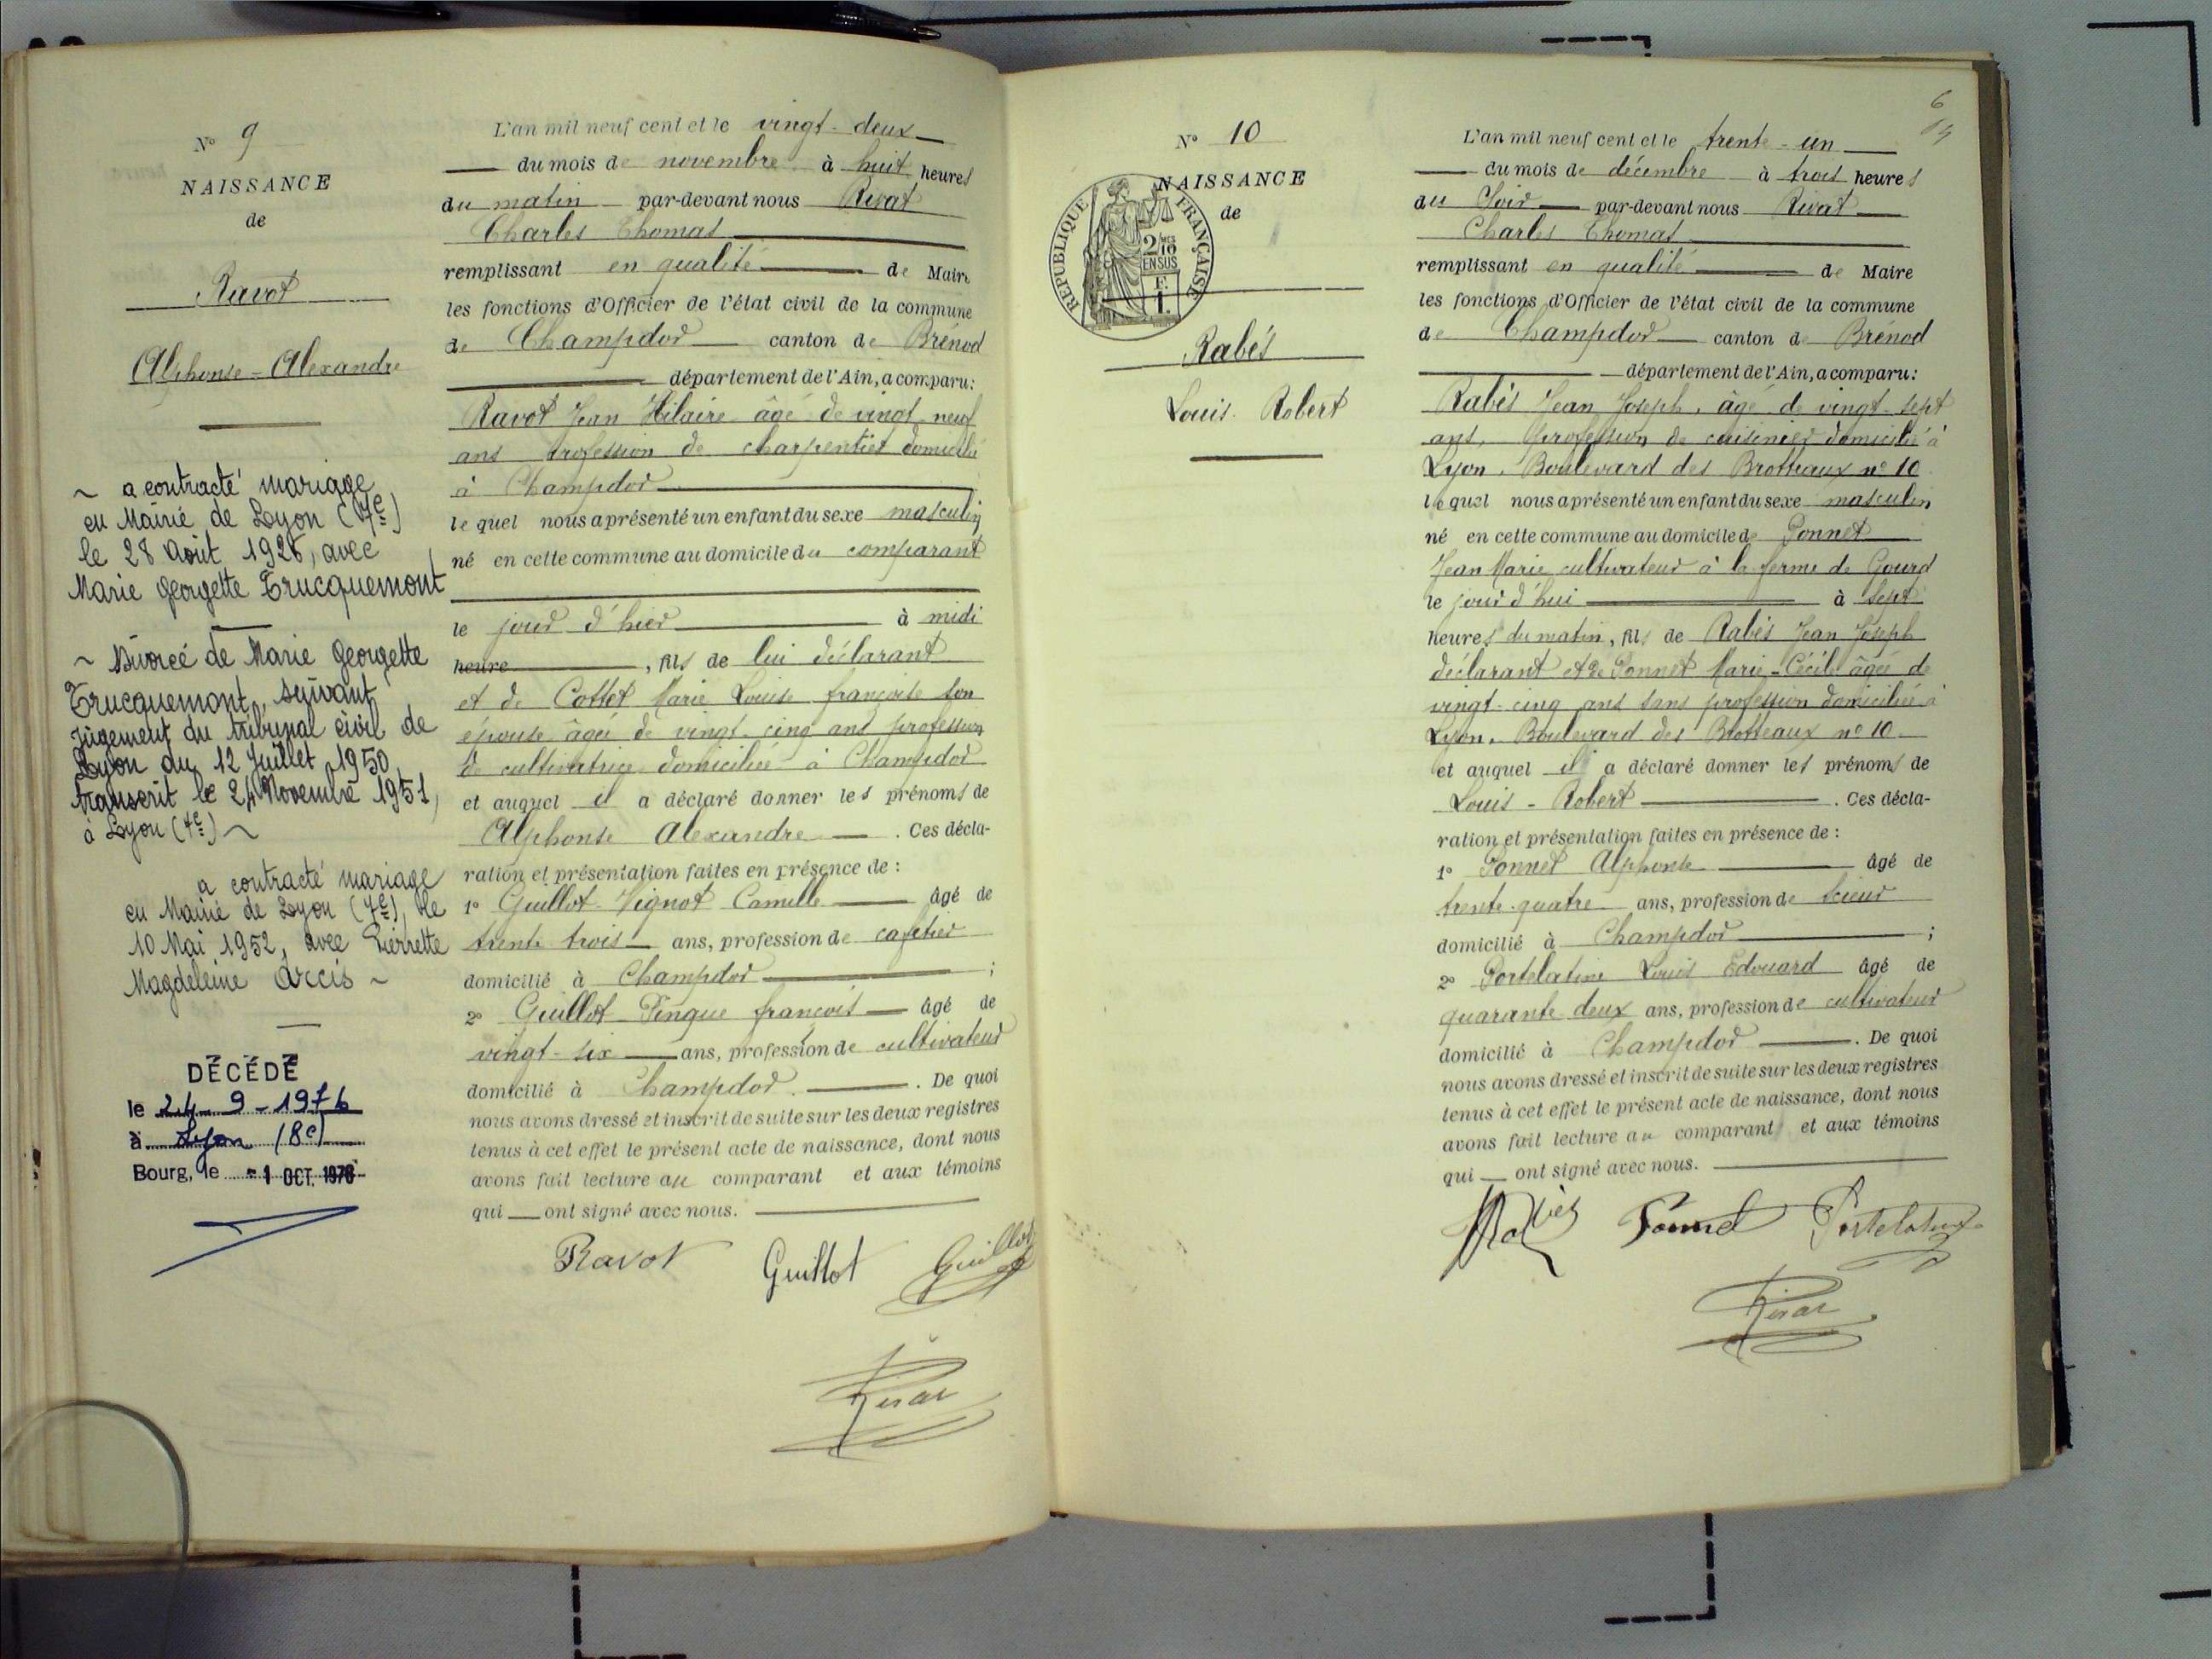 N° 9
NAISSANCE
de
Ravot
Alphonse-Alexandre
~ a contracté mariage
en Mairie de Lyon (7e)
le 28 Août 1926, avec
Marie Georgette Trucquemont
~ Divorcé de Marie Georgette
Trucquemont, suivant
jugement du tribunal civil de
Lyon du 12 Juillet 1950
transcrit le 24 Novembre 1951,
à Lyon (7e) ~
a contracté mariage
en Mairie de Lyon (7e), le
10 Mai 1952, avec Pierrette
Magdeleine Arcis ~
DÉCÉDÉ
le 24-9-1976
à Lyon (8e)
Bourg, le - 1 OCT. 1976
L'an mil neuf cent et le vingt-deux
du mois de novembre à huit heures
du matin par-devant nous Rivat
Charles Thomas
remplissant en qualité de Maire
les fonctions d'Officier de l'état civil de la commune
de Champdor canton de Brénod
département de l'Ain, a comparu:
Ravot Jean Hilaire âgé de vingt neuf
ans profession de charpentier domicilié
à Champdor
lequel nous a présenté un enfant du sexe masculin
né en cette commune au domicile du comparant
le jour d'hier à midi
heure, fils de lui déclarant
et de Cottet Marie Louise françoise son
épouse âgée de vingt-cinq ans profession
de cultivatrice domiciliée à Champdor
et auquel il a déclaré donner les prénoms de
Alphonse Alexandre. Ces décla-
ration et présentation faites en présence de :
1° Guillot-Vignot Camille âgé de
trente trois ans, profession de cafetier
domicilié à Champdor ;
2° Guillot Pingue françois âgé de
vingt-six ans, profession de cultivateur
domicilié à Champdor. De quoi
nous avons dressé et inscrit de suite sur les deux registres
tenus à cet effet le présent acte de naissance, dont nous
avons fait lecture au comparant et aux témoins
qui ont signé avec nous.
Ravot Guillot Guillot
Rivat
N° 10
NAISSANCE
de
REPUBLIQUE FRANÇAISE
2/10
EN SUS
F.
1.
Rabés
Louis-Robert
6
L'an mil neuf cent et le trente-un
du mois de décembre à trois heures
du Soir par-devant nous Rivat
Charles Thomas
remplissant en qualité de Maire
les fonctions d'Officier de l'état civil de la commune
de Champdor canton de Brénod
département de l'Ain, a comparu:
Rabés Jean Joseph, âgé de vingt-sept
ans, profession de cuisinier domicilié à
Lyon, Boulevard des Brotteaux n° 10
lequel nous a présenté un enfant du sexe masculin
né en cette commune au domicile de Ponnet
Jean Marie cultivateur à la ferme de Gourd
le jour d'hui à sept
heures du matin, fils de Rabés Jean Joseph
déclarant et de Ponnet Marie-Cécile âgée de
vingt-cinq ans sans profession domiciliée à
Lyon, Boulevard des Brotteaux n° 10
et auquel il a déclaré donner les prénoms de
Louis-Robert. Ces décla-
ration et présentation faites en présence de :
1° Ponnet Alphonse âgé de
trente-quatre ans, profession de scieur
domicilié à Champdor ;
2° Portelatine Louis Edouard âgé de
quarante-deux ans, profession de cultivateur
domicilié à Champdor. De quoi
nous avons dressé et inscrit de suite sur les deux registres
tenus à cet effet le présent acte de naissance, dont nous
avons fait lecture au comparant et aux témoins
qui ont signé avec nous.
Rabés Ponnet Portelatine
Rivat